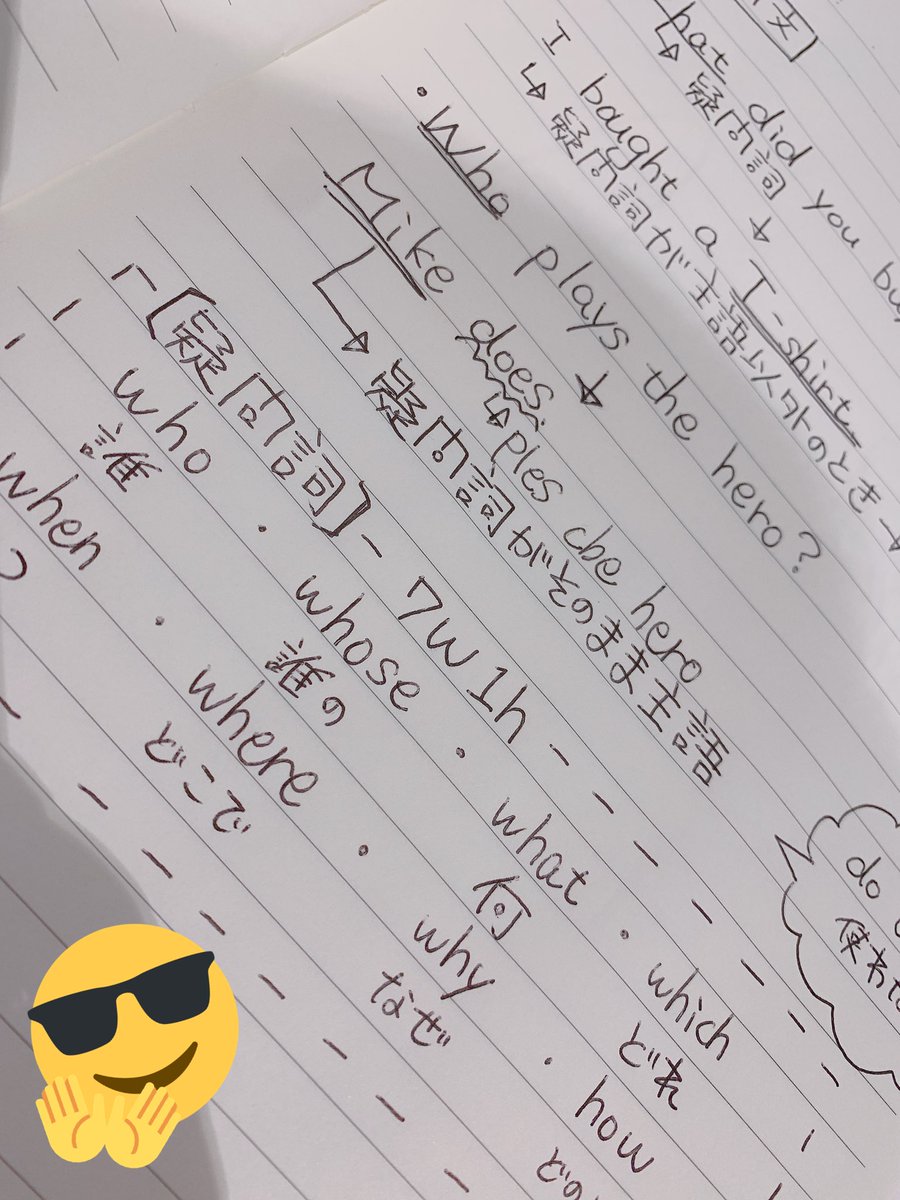 文]
hat did you bu
↳ 疑問詞
I bought a T-shirt
↳ 疑問詞が主語以外のとき
・Who plays the hero?
Mike does.
↳ plays the hero
↳ 疑問詞がそのまま主語
[疑問詞] - 7W1h -
who ・ whose ・ what ・ which
誰 誰の 何 どれ
when ・ where ・ why ・ how
つ どこで なぜ どの
do
使わ